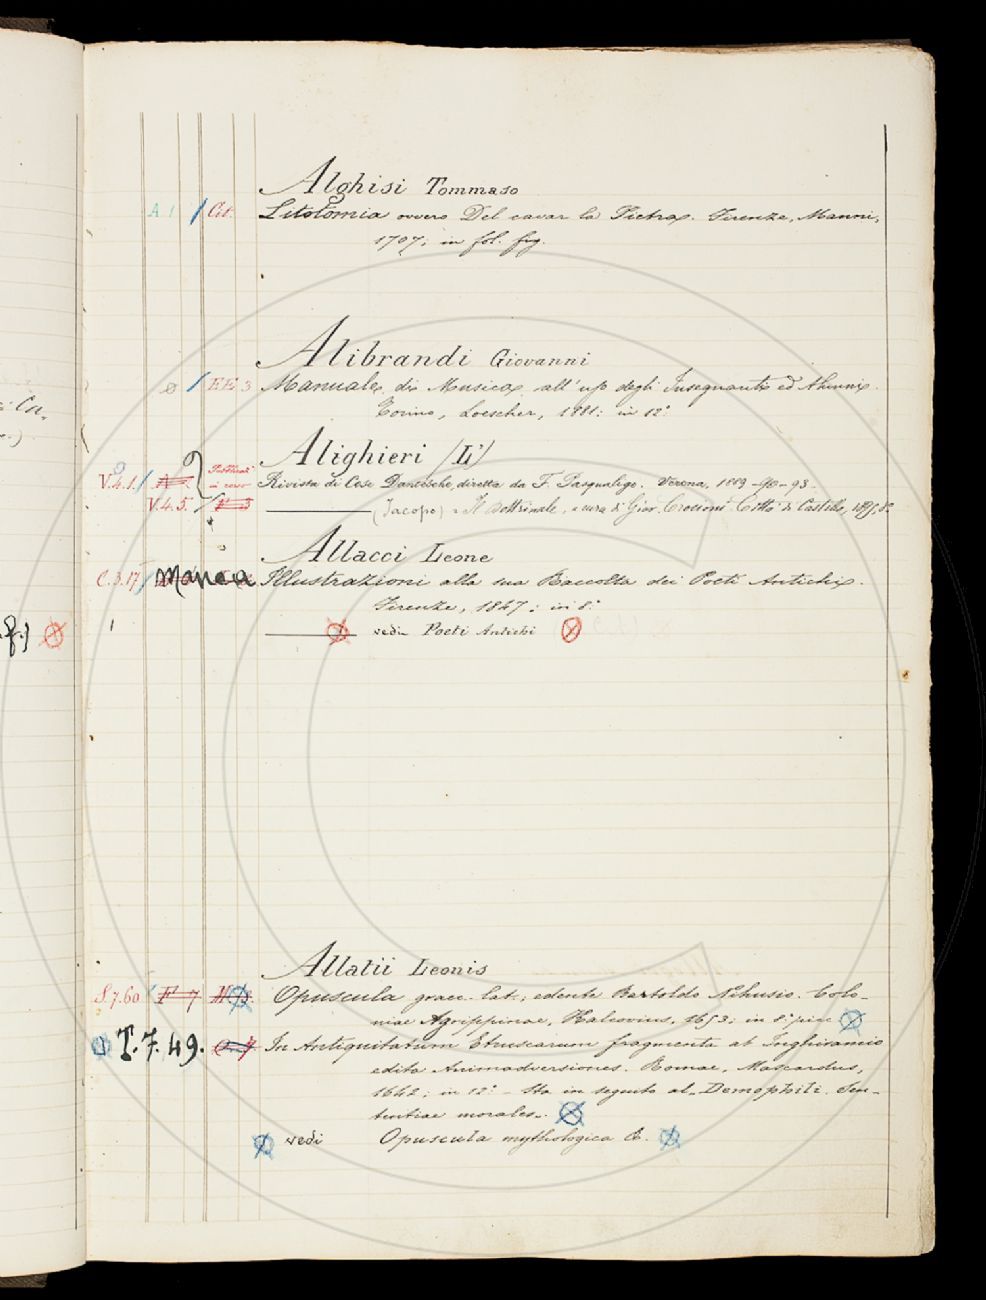 Alghisi Tommaso
A.1 / Cit. Litotomia ovvero Del cavar la Pietra. Firenze, Manni,
1707; in fol. fig.
Alibrandi Giovanni
/ EE 3 Manuale di Musica all'uso degli Insegnanti ed Alunni.
Torino, Loescher, 1881: in 12.°
Alighieri (L')
V.4.1. / Rivista di Cose Dantesche, diretta da F. Pasqualigo. Verona, 1889-90-93.
V.4.5. (Jacopo) Il Dottrinale, a cura di Giov. Crocioni. Città di Castello, 1895, 8.°
Allacci Leone
C.3.17 / Manca Illustrazioni alla sua Raccolta dei Poeti Antichi.
Firenze, 1847; in 8.°
vedi Poeti Antichi
Allatii Leonis
S.7.60 F 7 Opuscula graec. lat.; edente Bartoldo Nihusio. Colo-
niae Agrippinae, Kalcovius, 1653; in 8.° picc.
T.7.49. In Antiquitatum Etruscarum fragmenta ab Inghiramio
edita Animadversiones. Romae, Mascardus,
1642; in 12.° - Sta in seguito al "Demophili. Sen-
tentiae morales".
vedi Opuscula mythologica &.